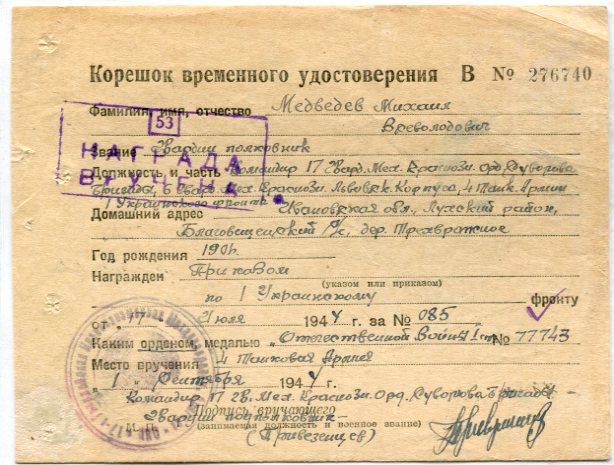 Корешок временного удостоверения В № 276740
Фамилия, имя, отчество Медведев Михаил
Всеволодович
53
НАГРАДА
ВРУЧЕНА
Звание Гвардии полковник
Должность и часть Командир 17 Гвард. Мех. Краснозн. Орд. Суворова
Бригады, 6 Гвард. Мех. Краснозн. Львовск. Корпуса, 4 Танк. Армии
1 Украинского фронта
Домашний адрес Ивановская обл., Лухский район,
Благовещенский с/с, дер.
Год рождения 1904.
Награжден Приказом
(указом или приказом)
по 1 Украинскому фронту
от "17" Июля 1944 г. за № 085
Каким орденом, медалью "Отечественной Войны 1 ст." № 77743
Место вручения 4 Танковая Армия
"1" Сентября 1944 г.
Командир 17 Гв. Мех. Краснозн. Орд. Суворова Бригады -
Гвардии подполковник -
Подпись вручающего
М. П. (занимаемая должность и военное звание)
(Привезенцев)